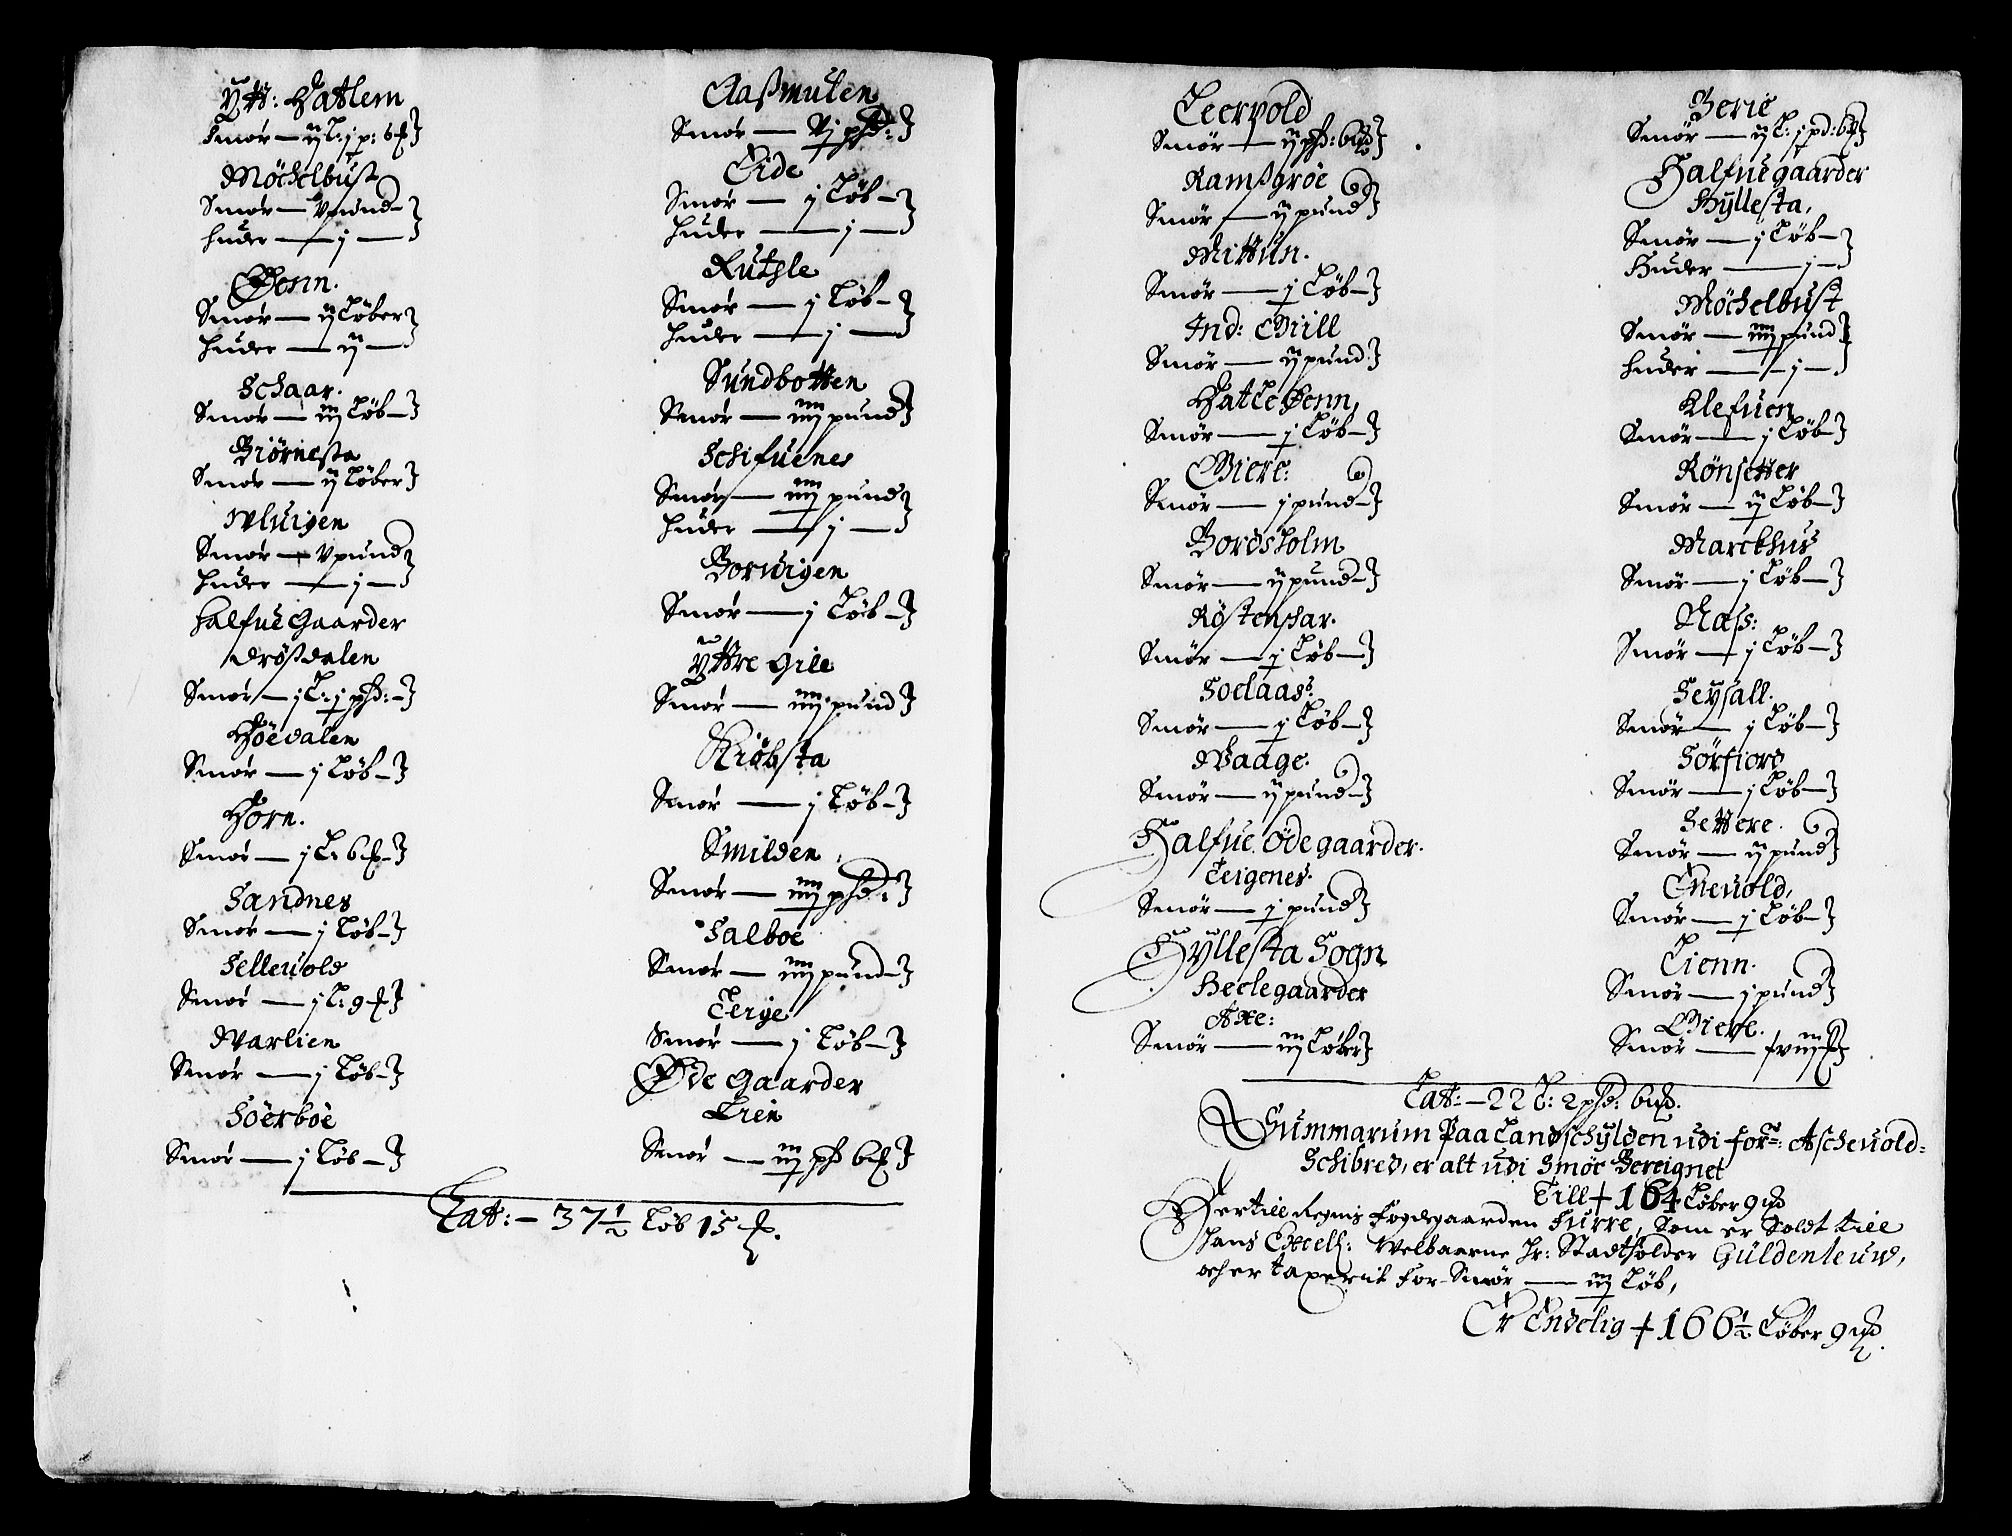 Ytt: Hatlem
Smør — ij L: j p: 6 
Möchelbust
Smør — V pund —
Huder — j —
Øenn.
Smør — ij Löber
Huder — ij —
Schaar.
Smør — iij Löb —
Biørnesta
Smør — ij Löber
Wluigen
Smør — V pund
Huder — j —
Halfue Gaarder
Drößdalen
Smør — j L: j pd: —
Höedalen
Smør — j Löb —
Horn.
Smør — j L: 6
Sandnes
Smør — j Löb —
Selleuold
Smør — j L: 9
Warlien
Smør — j Löb —
Soerboe
Smør — j Löb —
Aaßmulen
Smør — Vj pd:
Eide
Smør — j Löb —
Huder — j —
Rutsle
Smør — j Löb —
Huder — j —
Sundbotten
Smør — iiij pund
Schifuenes
Smør — iiij pund
Huder — j —
Boruigen
Smør — j Löb —
Yttre Gile
Smør — iiij pund
Kiöbsta
Smør — j Löb —
Smilden
Smør — iiij pd:
Salboe
Smør — iiij pund —
Terge
Smør — j Löb —
Øde Gaarder
Lien
Smør — iij pd 6
Lat: — 37½ Löb 15
Leeruold
Smør — ij pd: 6
Ramßgröe
Smør — ij pund
Mittun.
Smør — j Löb —
Ind: Giill
Smør — ij pund
Hatle Øenn,
Smør — j Löb —
Giere:
Smør — j pund —
Bordsholm
Smør — ij pund —
Röstenschar.
Smør — j Löb —
Soelaas:
Smør — j Löb —
Waage.
Smør — ij pund —
Halfue. Öde gaarder.
Teigenes.
Smør — j pund
Hyllesta Sogn
Heele gaarder
Axe:
Smør — iij Löber
Berie
Smør — ij L: j pd: 6
Halfue gaarder
Hyllesta,
Smør — j Löb —
Huder — j —
Möchelbust
Smør — iiij pund
Huder — j —
Klefuen
Smør — j Löb —
Rönsetter
Smør — ij Löb —
Marckhus
Smør — j Löb —
Nass:
Smør — j Löb —
Seysall.
Smør — j Löb —
Sörfiord
Smør — j Löb —
Settere.
Smør — ij pund
Eneuold,
Smør — j Löb —
Lienn.
Smør — j pund
Giere.
Smør — xviij
Lat: — 22 L: 2 pd: 6
Summarum Paa Landschylden udi for: Ascheuold=
Schibred, er alt udi Smör Bereignet
Till + 164 Löber 9
Hertill Regnis Fogdegaarden Surre, som er Soldt till
Hans Excell: Welbaarne Hr: Stadtholder Güldenleuw,
och er taxerit for Smör — iij Löb,
Er Endelig + 166½ Löber 9